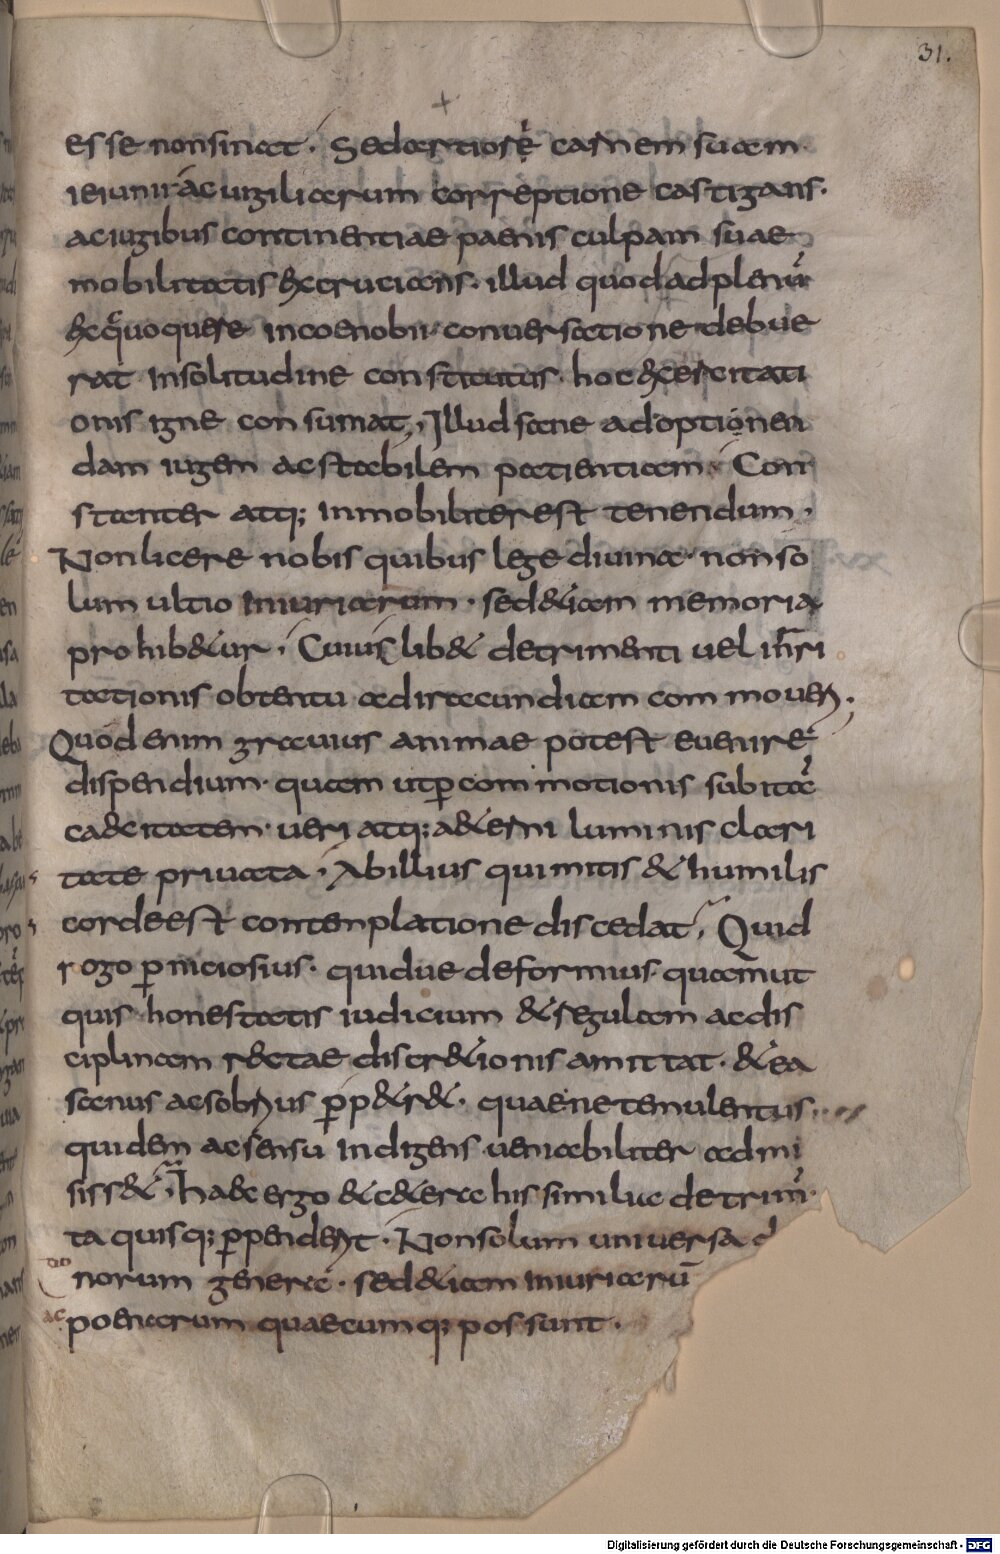 31.
esse non sinat. Sed artiorē carnem suam
ieiunii ac uigiliarum correptione castigans.
ac iugibus continentiae paenis culpam suae
mobilitatis excrucians. illud quod ad plenū
exęquo quere in coenobii conuersatione debue
rat in solitudine constitutus. hoc exercitati
onis igne consumat, Illud sane ad optinen
dam iugem ac stabilem patientiam Con
stanter atq; inmobiliter est tenendum.
Non licere nobis quibus lege diuina non so
lum ultio iniuriarum. sed &iam memoria
prohib&ur. Cuiuslib& detrimenti uel
tationis obtentu ad iracundiam commoueri.
Quod enim grauius animae potest euenire
dispendium. quam ut p commotionis subitae
caecitatem ueri atq; a&erni luminis clari
tate priuata. Ab illius qui mitis & humilis
corde est contemplatione discedat, Quid
rogo pniciosius. quidue deformius quam ut
quis honestatis iudicium & regulam ac dis
ciplinam rectae discr&ionis amittat. & ea
sanus ac sobrius pp&r&. quae ne temulentus
quidem ac sensu indigens ueniabiliter admi
siss&, haec ergo & c&era his similia detrim̄
ta quisq; ppenderit. Non solum uniuersa d
norum genera. sed &iam iniuriarū
ac
poenarum quaecumq; possunt.
Digitalisierung gefördert durch die Deutsche Forschungsgemeinschaft - DFG